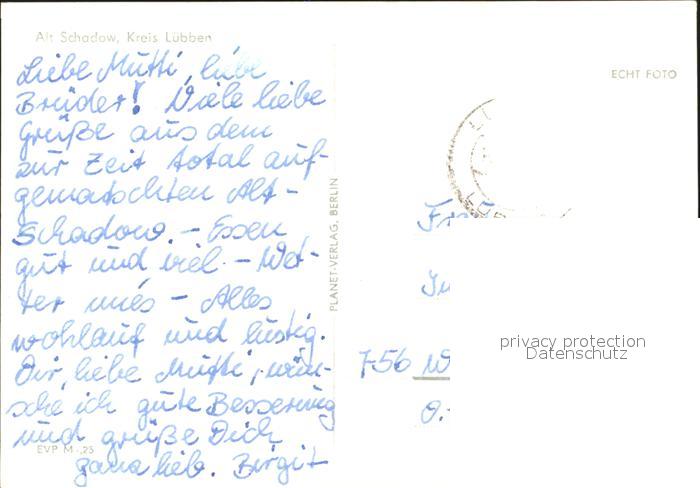 Alt Schadow, Kreis Lübben
Liebe Mutti, liebe
Brüder! Viele liebe
Grüße aus dem
zur Zeit total auf-
gematschten Alt-
Schadow. - Essen
gut und viel. - Wet-
ter mies - Alles
wohlauf und lustig.
Dir, liebe Mutti, wün-
sche ich gute Besserung
und grüße Dich
ganz lieb. Birgit
EVP M -,25
PLANET-VERLAG, BERLIN
ECHT FOTO
756
privacy protection
Datenschutz